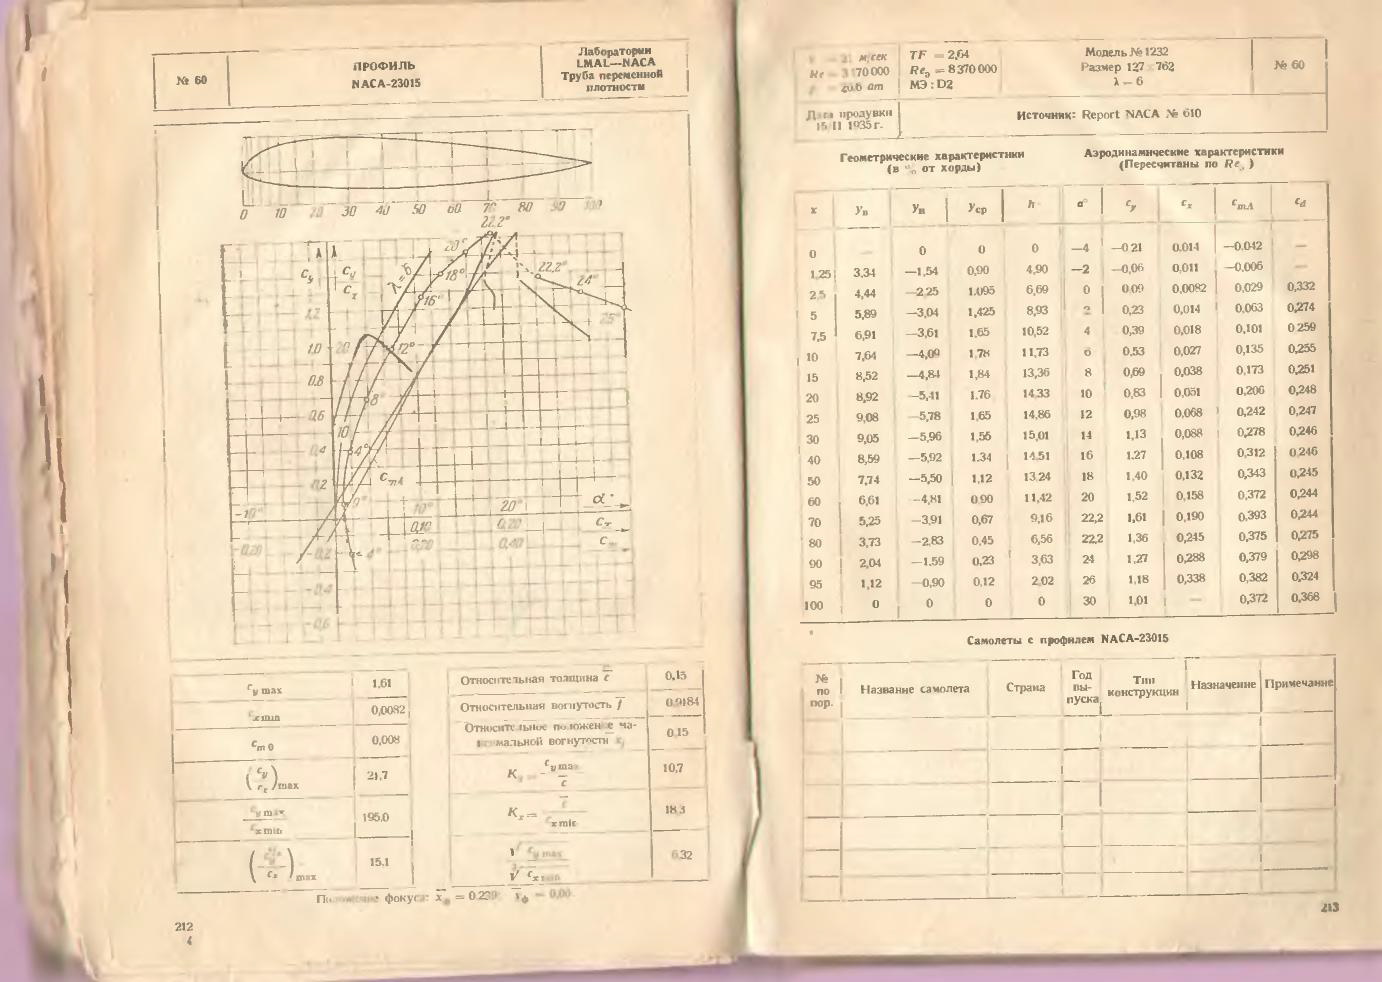 № 60
ПРОФИЛЬ
NACA-23015
Лаборатория
LMAL—NACA
Труба переменной
плотности
0 10 30 40 50 60 70 80 90 100
22.2°
20°
λ=6
18°
22,2°
24°
16°
25°
1,2
1,0 20 12°
0.8
8°
0,6
10
0,4 4°
0,2 CmA
0°
-10° 10° 20° α°
0,10 0,20 Cx
-0,20 -0,2 4° 0,20 0,40 Cm
-0,4
-0,6
cy max 1,61
cx min 0,0082
cm 0 0,008
(cy/cx)max 21,7
cy max/cx min 195.0
15.1
Относительная толщина c̅ 0,15
Относительная вогнутость f̅ 0.0184
Относительное положение ма-
ксимальной вогнутости x̅f 0,15
Ky = cy max/c̅ 10,7
Kx = c̅/cx min 18.3
6.32
Положение фокуса: x̅ф = 0.239; y̅ф = 0,00
212
4
м/сек
70 000
20.6 ат
TF = 2,64
Reэ = 8 370 000
МЭ : D2
Модель № 1232
Размер 127 762
λ — 6
№ 60
Дата продувки
15/II 1935 г.
Источник: Report NACA № 610
Геометрические характеристики
(в % от хорды)
Аэродинамические характеристики
(Пересчитаны по Reэ)
x yв yн yср h α° cy cx cmA cd
0 — 0 0 0 —4 —0 21 0.014 —0.042 —
1,25 3,34 —1,54 0,90 4,90 —2 —0,06 0,011 —0.006 —
2,5 4,44 —2 25 1.095 6,69 0 0.09 0,0082 0,029 0,332
5 5,89 —3,04 1,425 8,93 2 0,23 0,014 0.063 0,274
7,5 6,91 —3,61 1,65 10,52 4 0,39 0,018 0,101 0 259
10 7,64 —4,09 1,78 11,73 6 0.53 0,027 0,135 0,255
15 8,52 —4,84 1,84 13,36 8 0,69 0,038 0,173 0,251
20 8,92 —5,41 1.76 14,33 10 0,83 0,051 0,206 0,248
25 9,08 —5,78 1,65 14,86 12 0,98 0,068 0,242 0,247
30 9,05 —5,96 1,55 15,01 14 1,13 0,088 0,278 0,246
40 8,59 —5,92 1.34 14.51 16 1.27 0,108 0,312 0,246
50 7,74 —5,50 1,12 13.24 18 1,40 0,132 0,343 0,245
60 6,61 —4,81 0.90 11,42 20 1,52 0,158 0,372 0,244
70 5,25 —3,91 0,67 9,16 22,2 1,61 0,190 0,393 0,244
80 3,73 —2,83 0,45 6,56 22,2 1,36 0,245 0,375 0,275
90 2,04 —1.59 0,23 3,63 24 1,27 0,288 0,379 0,298
95 1,12 —0,90 0.12 2,02 26 1,18 0,338 0,382 0,324
100 0 0 0 0 30 1,01 — 0,372 0,368
Самолеты с профилем NACA-23015
№ по пор. Название самолета Страна Год вы-пуска Тип конструкции Назначение Примечание
213